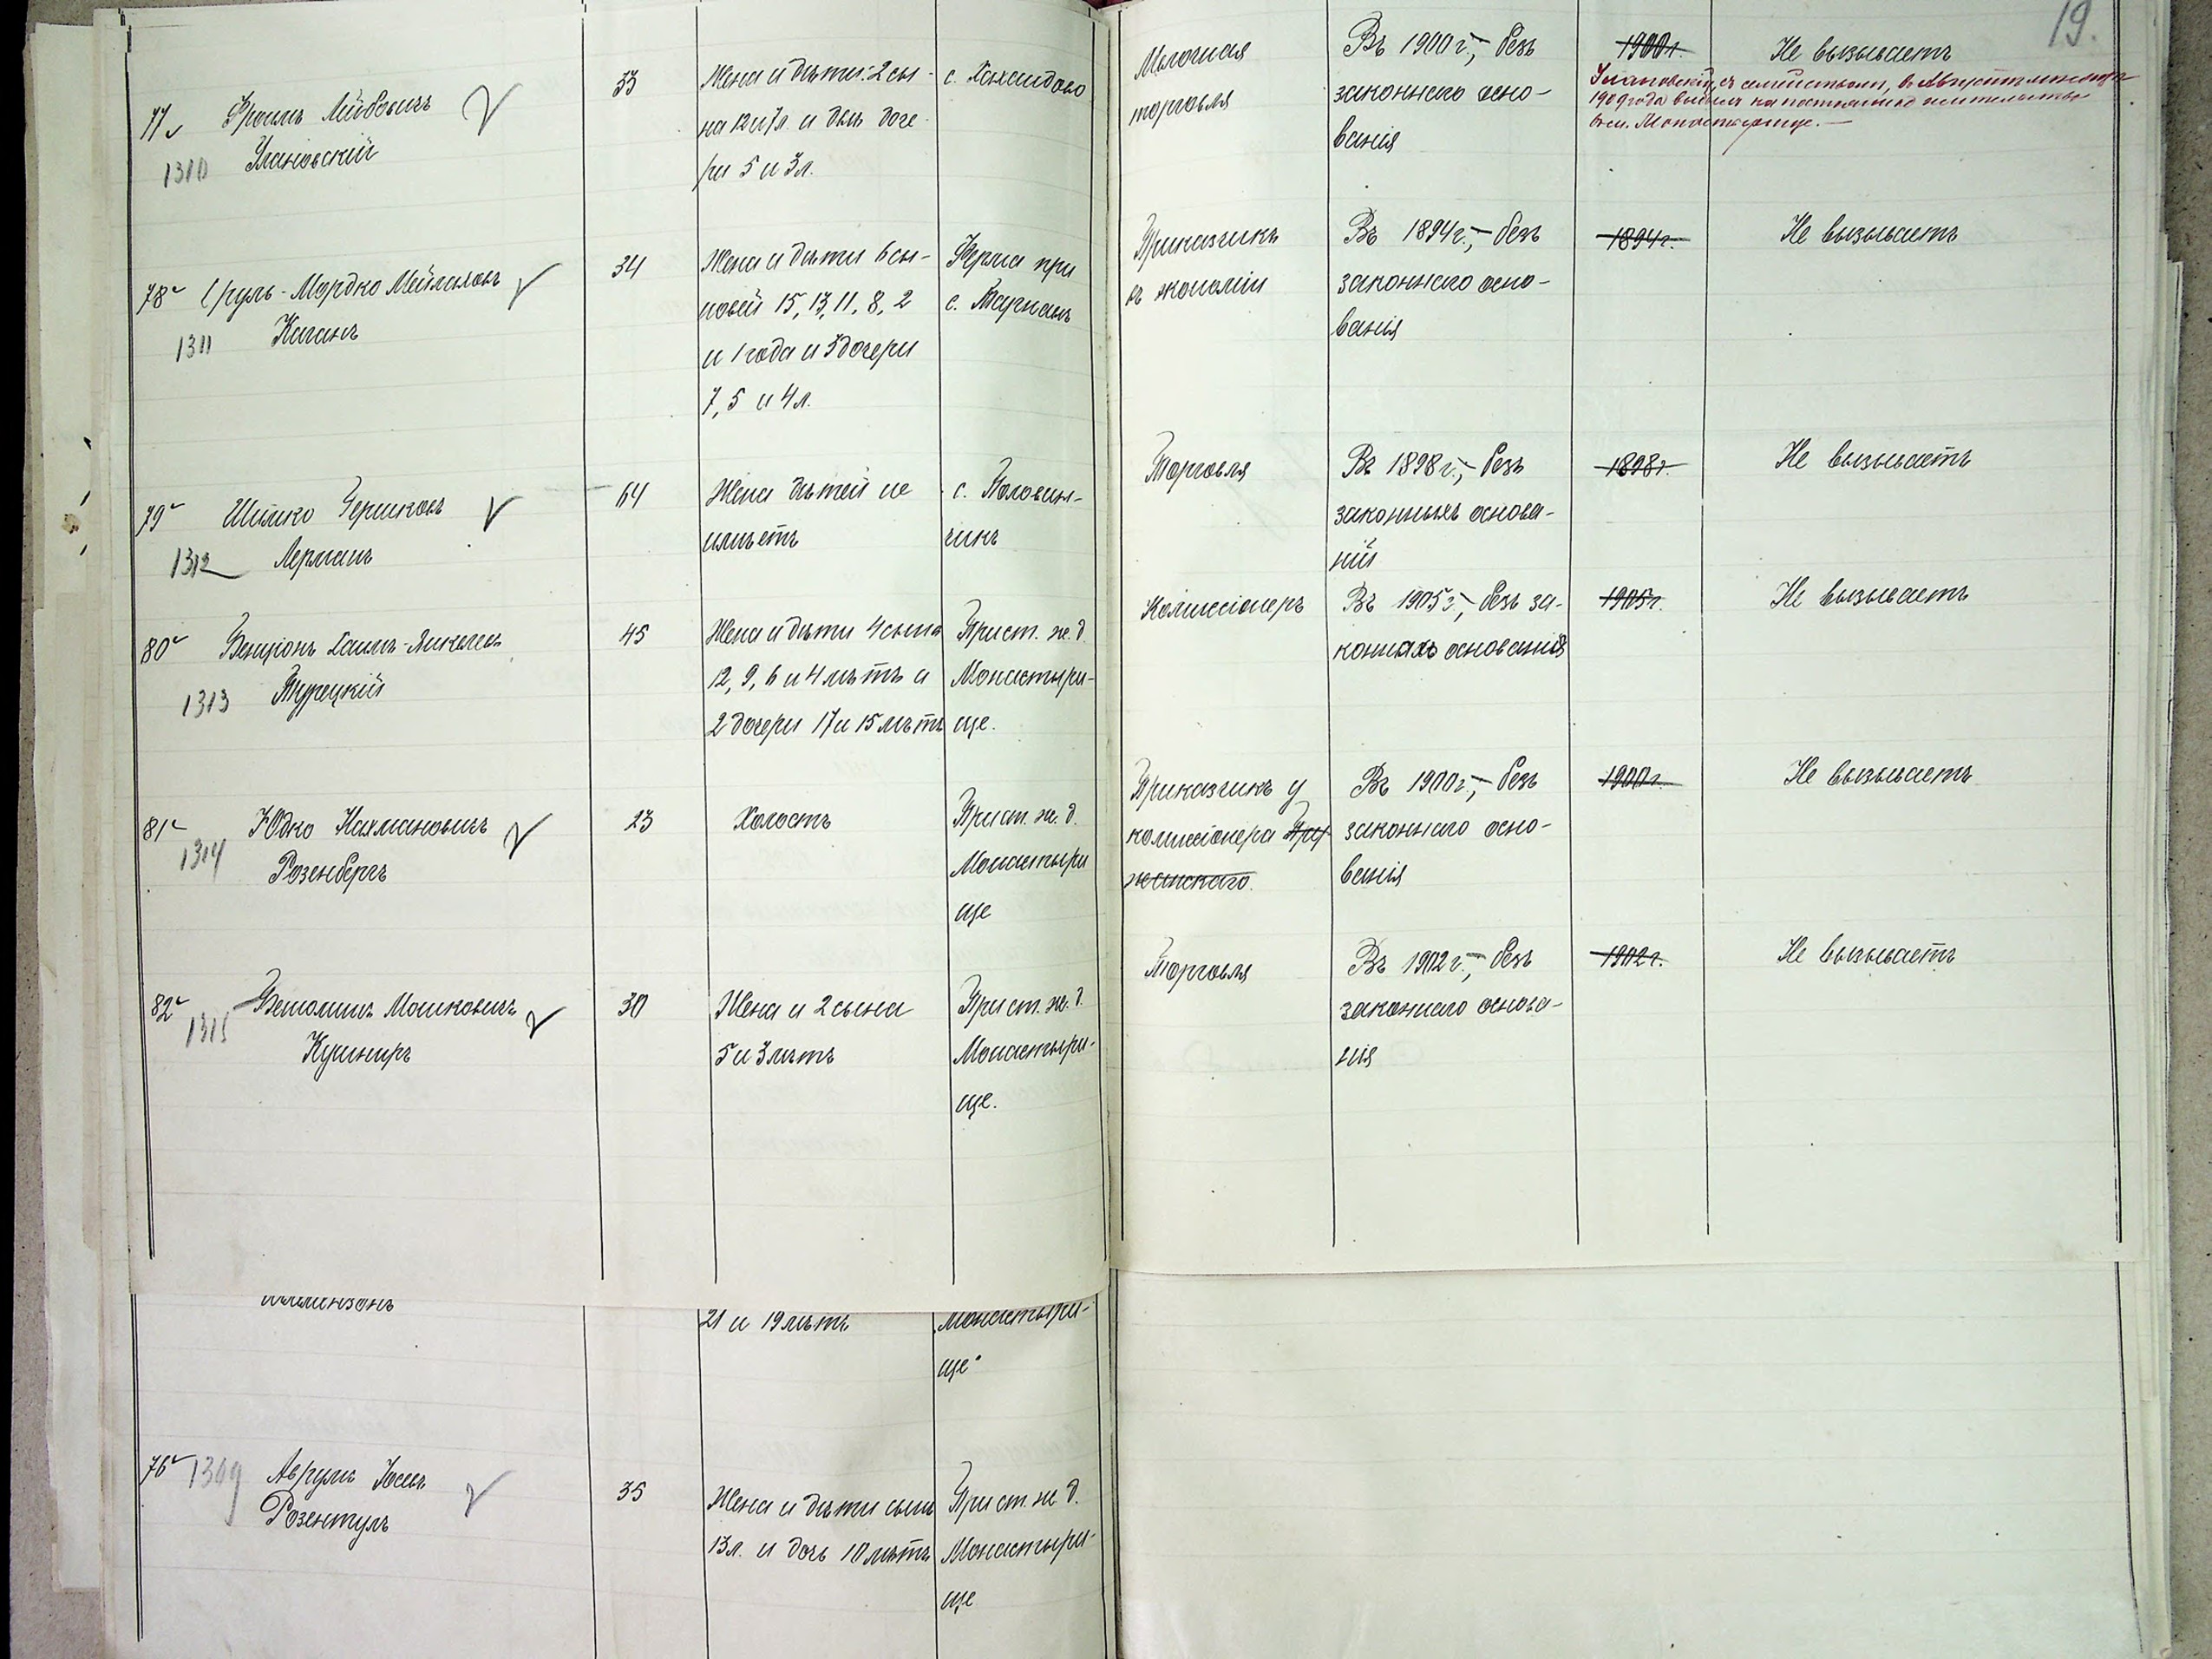 19.
77 Фроимъ Лейбовичъ
1310 Улановскій
33
Жена и дѣти: 2 сы-
на 12 и 7 л. и двѣ доче-
ри 5 и 3 л.
Мелочная
торговля
Въ 1900 г., – безъ
законнаго осно-
ванія
1900 г.
Не вызываетъ
Улановскій, съ семействомъ, въ Августѣ мѣсяцѣ
1909 года выбылъ на постоянное жительство
въ м. Монастырище. –
78 Сруль-Мордко Мейлаховъ
1311 Каганъ
34
Жена и дѣти 6 сы-
новей 15, 13, 11, 8, 2
и 1 года и 3 дочери
7, 5 и 4 л.
Ферма при
с.
Приказчикъ
въ экономіи
Въ 1894 г., – безъ
законнаго осно-
ванія
1894 г.
Не вызываетъ
79 Шимко Гершковъ
1312 Лерманъ
64
Жена дѣтей не
имѣетъ
с. Половин-
чикъ
Торговля
Въ 1898 г., – безъ
законныхъ основа-
ній
1898 г.
Не вызываетъ
80 Бенціонъ Хаимъ-Янкелевъ
1313 Турецкій
45
Жена и дѣти 4 сына
12, 9, 6 и 4 лѣтъ и
2 дочери 17 и 15 лѣтъ
При ст. ж. д.
Монастыри-
ще.
Комиссіонеръ
Въ 1905 г., – безъ за-
конныхъ основаній
1905 г.
Не вызываетъ
81 Юдко Нахмановичъ
1314 Розенбергъ
23
Холостъ
При ст. ж. д.
Монастыри
ще
Приказчикъ у
комиссіонера Пру-
жанскаго.
Въ 1900 г., – безъ
законнаго осно-
ванія
1900 г.
Не вызываетъ
82 Беніоминъ Мошковичъ
1315 Кушниръ
30
Жена и 2 сына
5 и 3 лѣтъ
При ст. ж. д.
Монастыри-
ще.
Торговля
Въ 1902 г., – безъ
законнаго основа-
нія
1902 г.
Не вызываетъ
21 и 19 лѣтъ
Монастыри-
ще
76 1309 Аврумъ Іосевъ
Розентулъ
35
Жена и дѣти сынъ
13 л. и дочь 10 лѣтъ
При ст. ж. д.
Монастыри-
ще